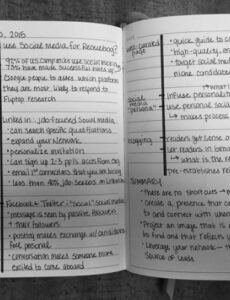 2015
use Social media for Recruiting?
92% of U.S. companies use social media
73% have made successful hires w/
Google people to ask which platform
they are most likely to respond to
Fliptop research
Linked in - job-focused Social media
can search specific qualifications
expand your network
personalize invitation
can sign up 2-3 ppl
email 1st connections that you are hiring
less than 40% job-seekers on LinkedIn
Facebook + Twitter = "Social" social media
message is seen by passive followers
+ their followers
posting makes exchange w/ candidates
feel personal
conversation makes someone more
excited to come aboard
well-curated
page
quick guide to
high-quality,
target social
niche candidates
what is
social
media
"persona"
infuse personality
use personal social
makes process
blogging
readers get sense
let readers in
what is the
pre-establishes
SUMMARY
there are no short cuts
create a presence that
to and connect with
Project an image that is
to find and that reflects
leverage your network - th
Source of leads